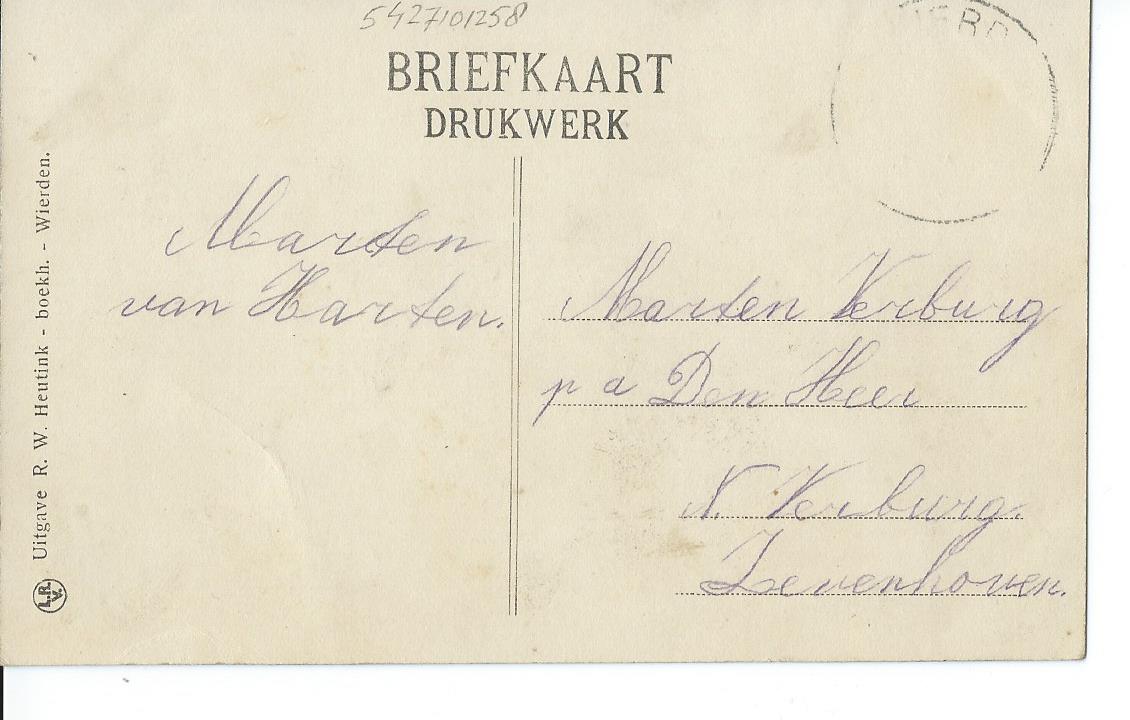 5427101258
BRIEFKAART
DRUKWERK
Marten
van Harten.
Marten Verburg
p a Den Heer
N. Verburg.
Zevenhoven.
Uitgave R. W. Heutink - boekh. - Wierden.
L.R.
V.